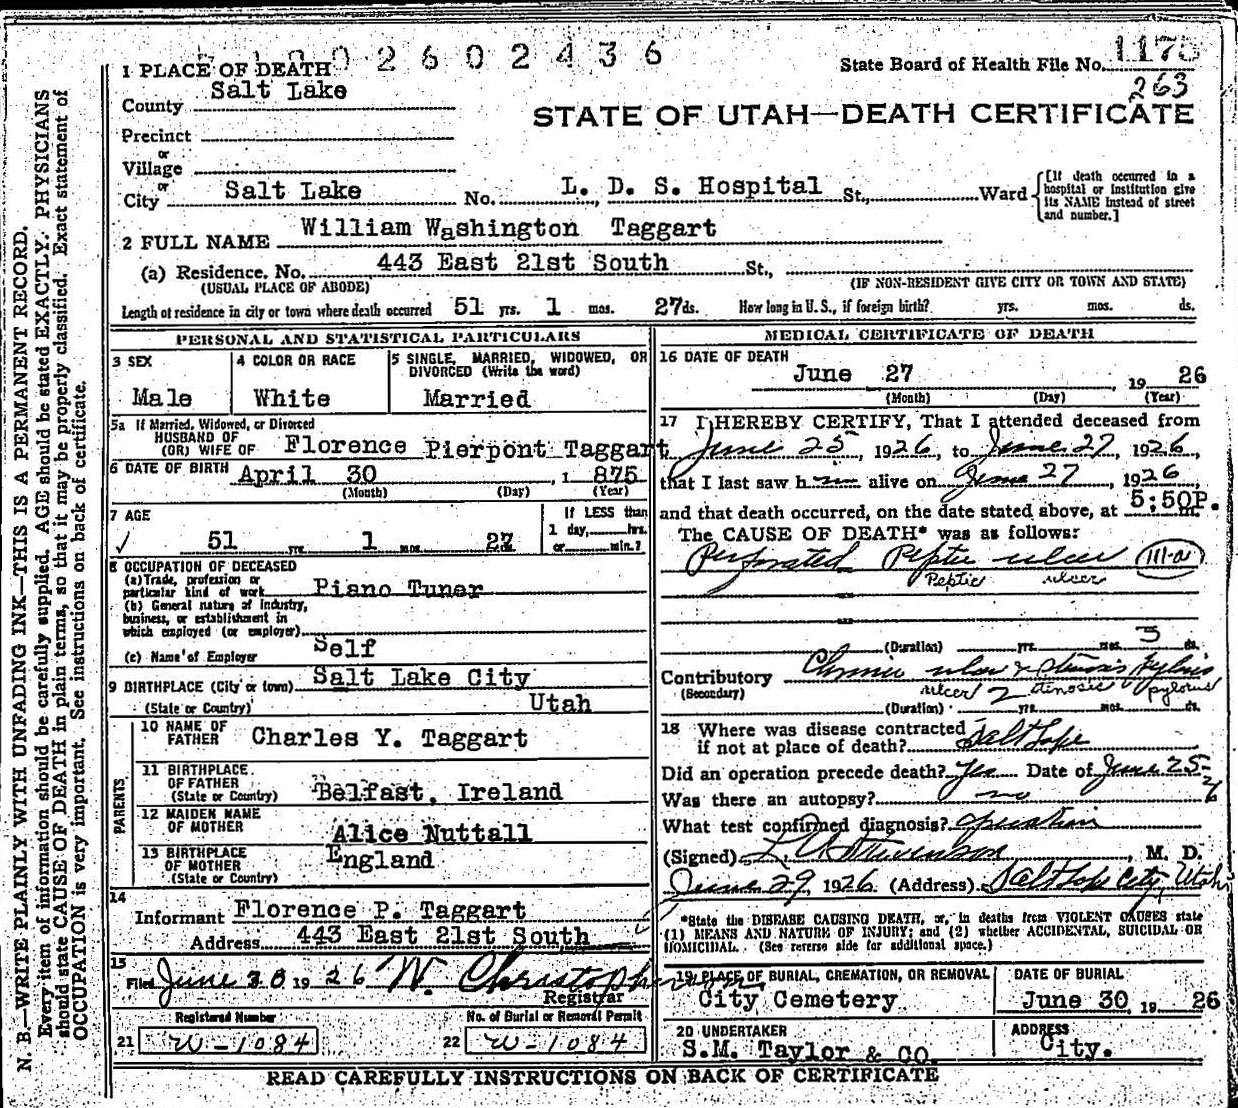 1 0 0 2 6 0 2 4 3 6
1175
State Board of Health File No.
263
1 PLACE OF DEATH
County Salt Lake
STATE OF UTAH—DEATH CERTIFICATE
Precinct
or
Village
or
City Salt Lake No. L. D. S. Hospital St., Ward
[If death occurred in a hospital or institution give its NAME instead of street and number.]
2 FULL NAME William Washington Taggart
(a) Residence. No. 443 East 21st South St.,
(USUAL PLACE OF ABODE) (IF NON-RESIDENT GIVE CITY OR TOWN AND STATE)
Length of residence in city or town where death occurred 51 yrs. 1 mos. 27 ds. How long in U.S., if foreign birth? yrs. mos. ds.
PERSONAL AND STATISTICAL PARTICULARS
3 SEX
Male
4 COLOR OR RACE
White
5 SINGLE, MARRIED, WIDOWED, OR
DIVORCED (Write the word)
Married
5a If Married, Widowed, or Divorced
HUSBAND OF
(OR) WIFE OF Florence Pierpont Taggart
6 DATE OF BIRTH April 30, 1 875
(Month) (Day) (Year)
7 AGE
51 yrs. 1 mos. 27 ds.
If LESS than
1 day, hrs.
or min.?
8 OCCUPATION OF DECEASED
(a) Trade, profession or
particular kind of work Piano Tuner
(b) General nature of industry,
business, or establishment in
which employed (or employer)
(c) Name of Employer Self
9 BIRTHPLACE (City or town) Salt Lake City
(State or Country) Utah
PARENTS
10 NAME OF
FATHER Charles Y. Taggart
11 BIRTHPLACE
OF FATHER
(State or Country) Belfast, Ireland
12 MAIDEN NAME
OF MOTHER Alice Nuttall
13 BIRTHPLACE
OF MOTHER
(State or Country) England
14
Informant Florence P. Taggart
Address 443 East 21st South
15
Filed June 30 1926 W. Christopherson
Registrar
Registered Number
21 W-1084
No. of Burial or Removal Permit
22 W-1084
MEDICAL CERTIFICATE OF DEATH
16 DATE OF DEATH
June 27, 19 26
(Month) (Day) (Year)
17 I HEREBY CERTIFY, That I attended deceased from
June 25, 1926, to June 27, 1926,
that I last saw him alive on June 27, 1926
and that death occurred, on the date stated above, at 5:50P. m.
The CAUSE OF DEATH* was as follows:
Perforated Peptic ulcer 111-a
Peptic ulcer
(Duration) yrs. mos. 3 ds.
Contributory Chronic ulcer & stenosis pylorus
(Secondary) ulcer stenosis pylorus
(Duration) 2 yrs. mos. ds.
18 Where was disease contracted
if not at place of death? Salt Lake
Did an operation precede death? Yes Date of June 25-26
Was there an autopsy? no
What test confirmed diagnosis? operation
(Signed) L. Stevenson, M. D.
June 29, 1926 (Address) Salt Lake City, Utah
*State the DISEASE CAUSING DEATH, or, in deaths from VIOLENT CAUSES state
(1) MEANS AND NATURE OF INJURY; and (2) whether ACCIDENTAL, SUICIDAL OR
HOMICIDAL. (See reverse side for additional space.)
19 PLACE OF BURIAL, CREMATION, OR REMOVAL
City Cemetery
DATE OF BURIAL
June 30, 19 26
20 UNDERTAKER
S.M. Taylor & CO.
ADDRESS
City.
READ CAREFULLY INSTRUCTIONS ON BACK OF CERTIFICATE
N. B.—WRITE PLAINLY WITH UNFADING INK—THIS IS A PERMANENT RECORD.
Every item of information should be carefully supplied. AGE should be stated EXACTLY. PHYSICIANS
should state CAUSE OF DEATH in plain terms, so that it may be properly classified. Exact statement of
OCCUPATION is very important. See instructions on back of certificate.